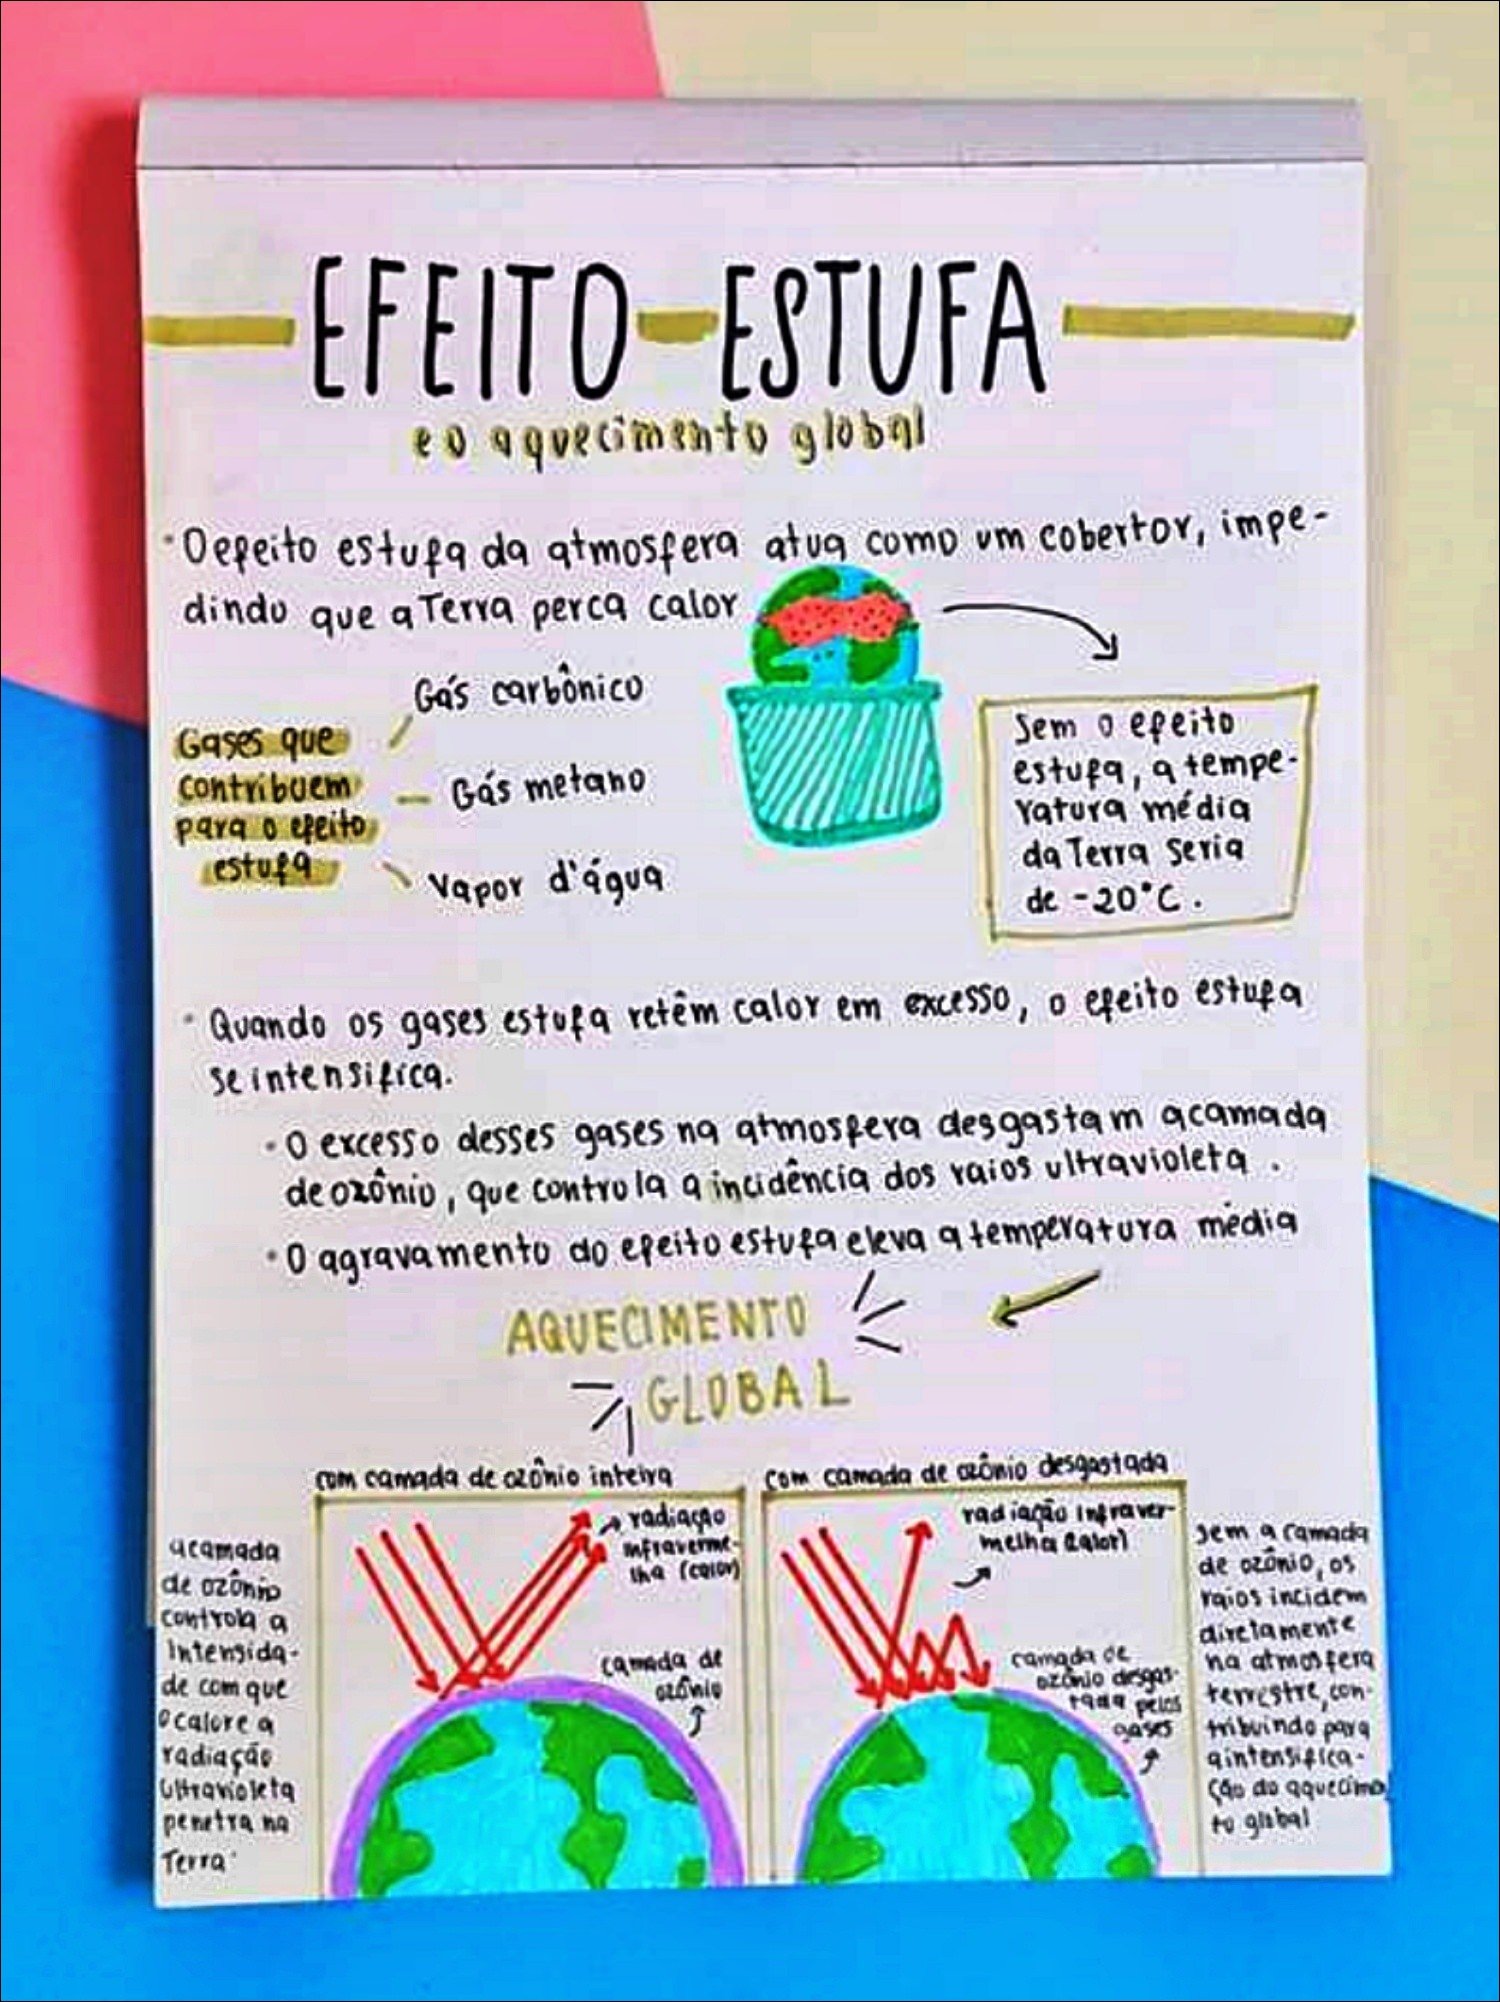 EFEITO ESTUFA
e o aquecimento global
· O efeito estufa da atmosfera atua como um cobertor, impe-
dindo que a Terra perca calor
Gases que
contribuem
para o efeito
estufa
Gás carbônico
Gás metano
Vapor d'água
Sem o efeito
estufa, a tempe-
ratura média
da Terra seria
de -20°C.
· Quando os gases estufa retêm calor em excesso, o efeito estufa
se intensifica.
· O excesso desses gases na atmosfera desgastam a camada
de ozônio, que controla a incidência dos raios ultravioleta.
· O agravamento do efeito estufa eleva a temperatura média
AQUECIMENTO
GLOBAL
com camada de ozônio inteira
a camada
de ozônio
controla a
intensida-
de com que
o calor e a
radiação
ultravioleta
penetra na
Terra.
radiação
infraverme-
lha (calor)
camada de
ozônio
com camada de ozônio desgastada
radiação infraver-
melha (calor)
camada de
ozônio desgas-
tada pelos
gases
Sem a camada
de ozônio, os
raios incidem
diretamente
na atmosfera
terrestre, con-
tribuindo para
a intensifica-
ção do aquecimen
to global